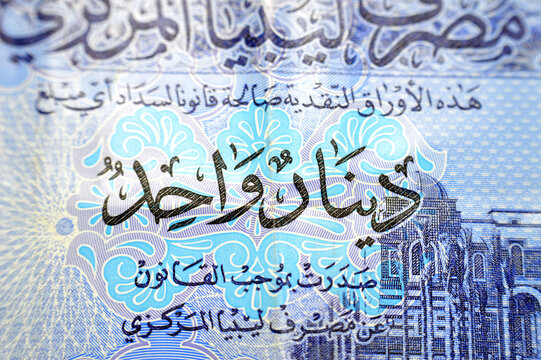 مصرف ليبيا المركزي
هذه الأوراق النقدية صالحة قانونا لسداد أي مبلغ
دينارٌ وَاحِدٌ
صَدَرَتْ بموجب القانون
عن مصرف ليبيا المركزي